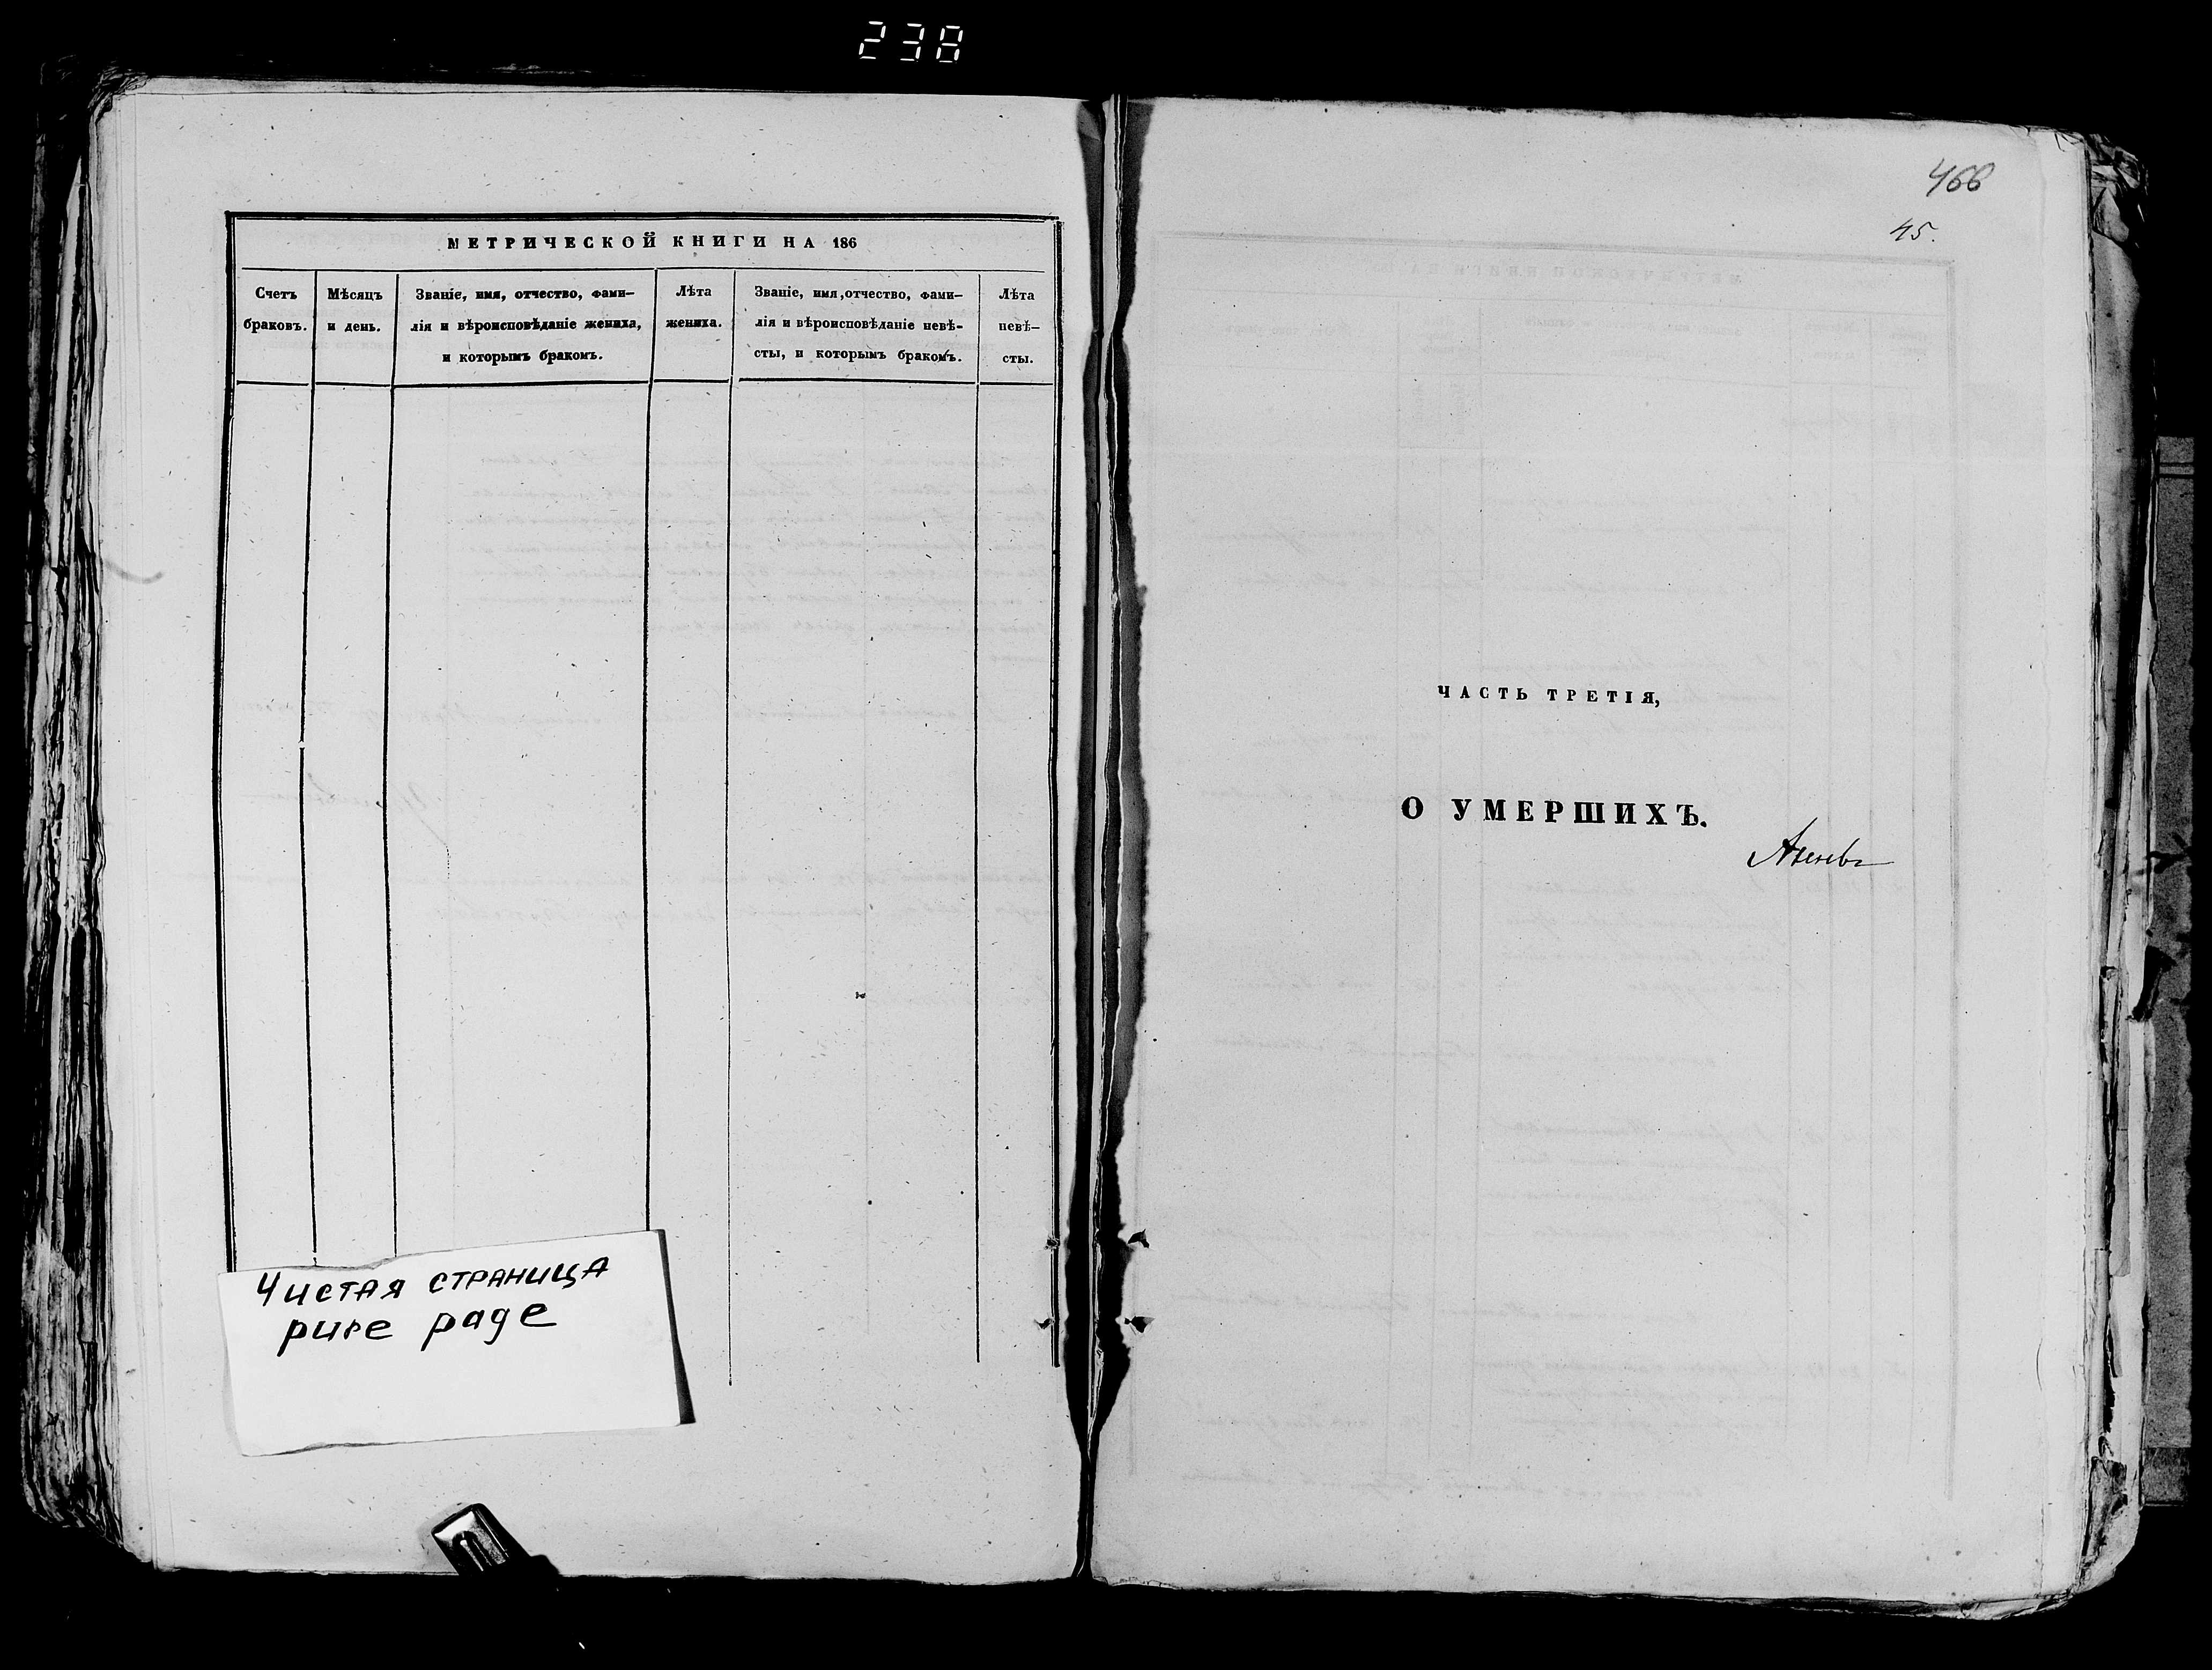 238
МЕТРИЧЕСКОЙ КНИГИ НА 186
Счетъ
браковъ.
Мѣсяцъ
и день.
Званіе, имя, отчество, фами—
лія и вѣроисповѣданіе жениха,
и которымъ бракомъ.
Лѣта
жениха.
Званіе, имя, отчество, фами—
лія и вѣроисповѣданіе невѣ-
сты, и которымъ бракомъ.
Лѣта
невѣ—
сты.
Чистая страница
pure page
466
45.
ЧАСТЬ ТРЕТІЯ,
О УМЕРШИХЪ.